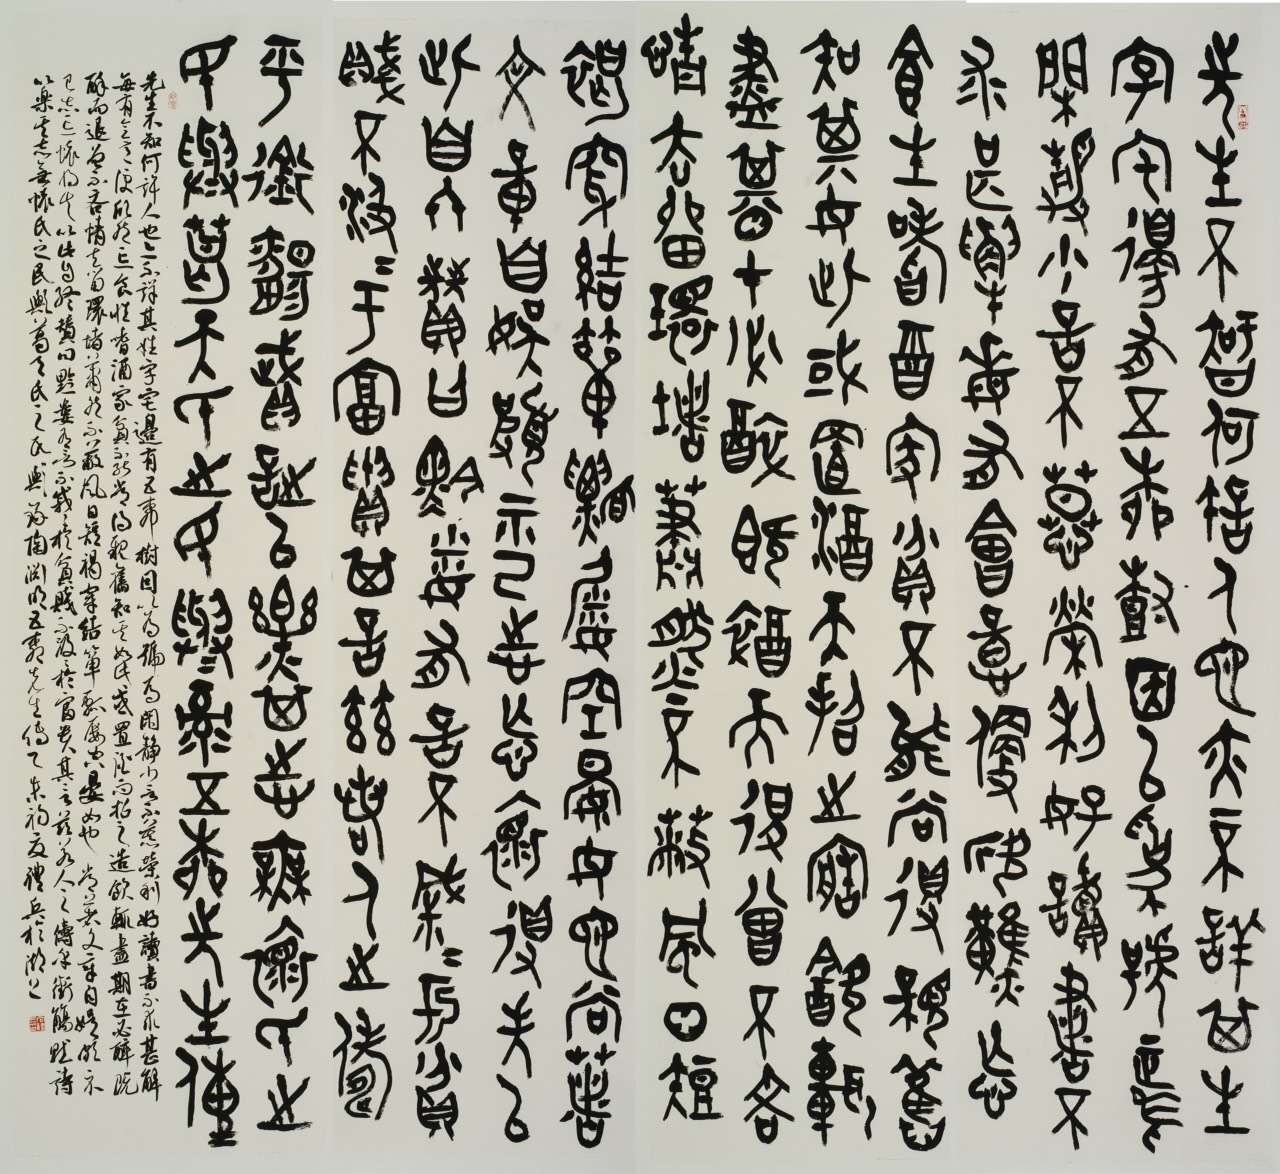 先生不智何許人也亦不詳其生
字宅邊有五柳樹因以為號焉
閑靜少言不慕榮利好讀書不
求甚解每有會意便欣然忘
食生嗜酉家貧不能常得親舊
知其如此或置酒而招之造飲輒
盡其才必醉既醉而退曾不吝
情去留環堵蕭然不蔽風日短
褐穿結簞瓢屢空晏如也常著
文章自娛頗示己志忘懷得失以
此自終贊曰黔婁有言不戚戚於貧
賤不汲汲于富貴其言茲若人之儔
乎銜觴賦詩以樂其志無懷氏之
民與葛天氏之民與錄五柳先生傳
先生不知何許人也亦不詳其姓字宅邊有五柳樹因以為號焉閑靜少言不慕榮利好讀書不求甚解
每有會意便欣然忘食性嗜酒家貧不能常得親舊知其如此或置酒而招之造飲輒盡期在必醉既
醉而退曾不吝情去留環堵蕭然不蔽風日短褐穿結簞瓢屢空晏如也常著文章自娛頗示
己志忘懷得失以此自終贊曰黔婁有言不戚戚於貧賤不汲汲於富貴其言茲若人之儔乎銜觴賦詩
以樂其志無懷氏之民與葛天氏之民與錄陶淵明五柳先生傳於湖上